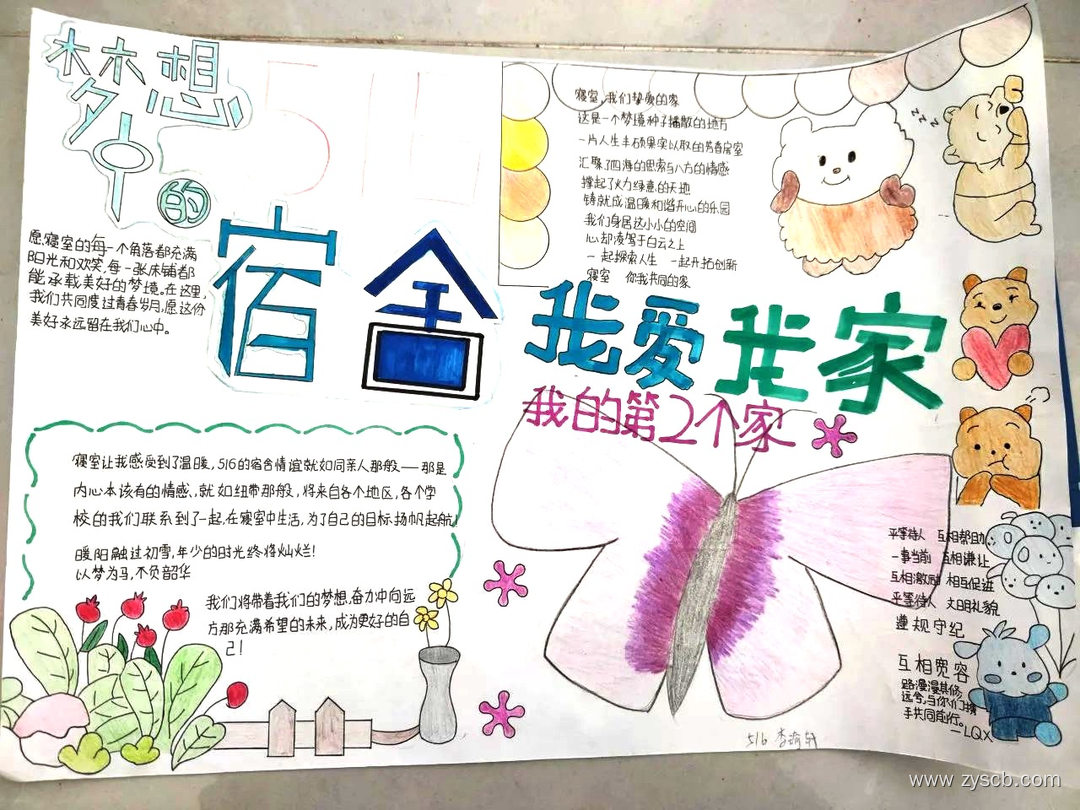 梦想
中的
516
宿舍
愿寝室的每一个角落都充满
阳光和欢笑,每一张床铺都
能承载美好的梦境。在这里,
我们共同度过青春岁月,愿这份
美好永远留在我们心中。
寝室,我们挚爱的家
这是一个梦境种子播散的地方
一片人生丰硕果实以取的青春房室
汇聚了四海的思索与八方的情感
撑起了火力绿意的天地
铸就成温暖和谐开心的乐园
我们身居这小小的空间
心却凌驾于白云之上
一起探索人生 一起开拓创新
寝室 你我共同的家
zzz
我爱我家
我的第2个家
寝室让我感受到了温暖,516的宿舍情谊就如同亲人那般——那是
内心本该有的情感,就如纽带那般,将来自各个地区,各个学
校的我们联系到了一起,在寝室中生活,为了自己的目标扬帆起航!
暖阳融过初雪,年少的时光终将灿烂!
以梦为马,不负韶华
我们将带着我们的梦想,奋力冲向远
方那充满希望的未来,成为更好的自
己!
平等待人 互相帮助
一事当前 互相谦让
互相激励 相互促进
平等待人 文明礼貌
遵规守纪
互相宽容
路漫漫其修
远兮,与你们携
手共同前行。
—LQX
516 李
www.zyscb.com